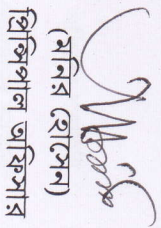 (মনির হোসেন)
প্রিন্সিপাল অফিসার